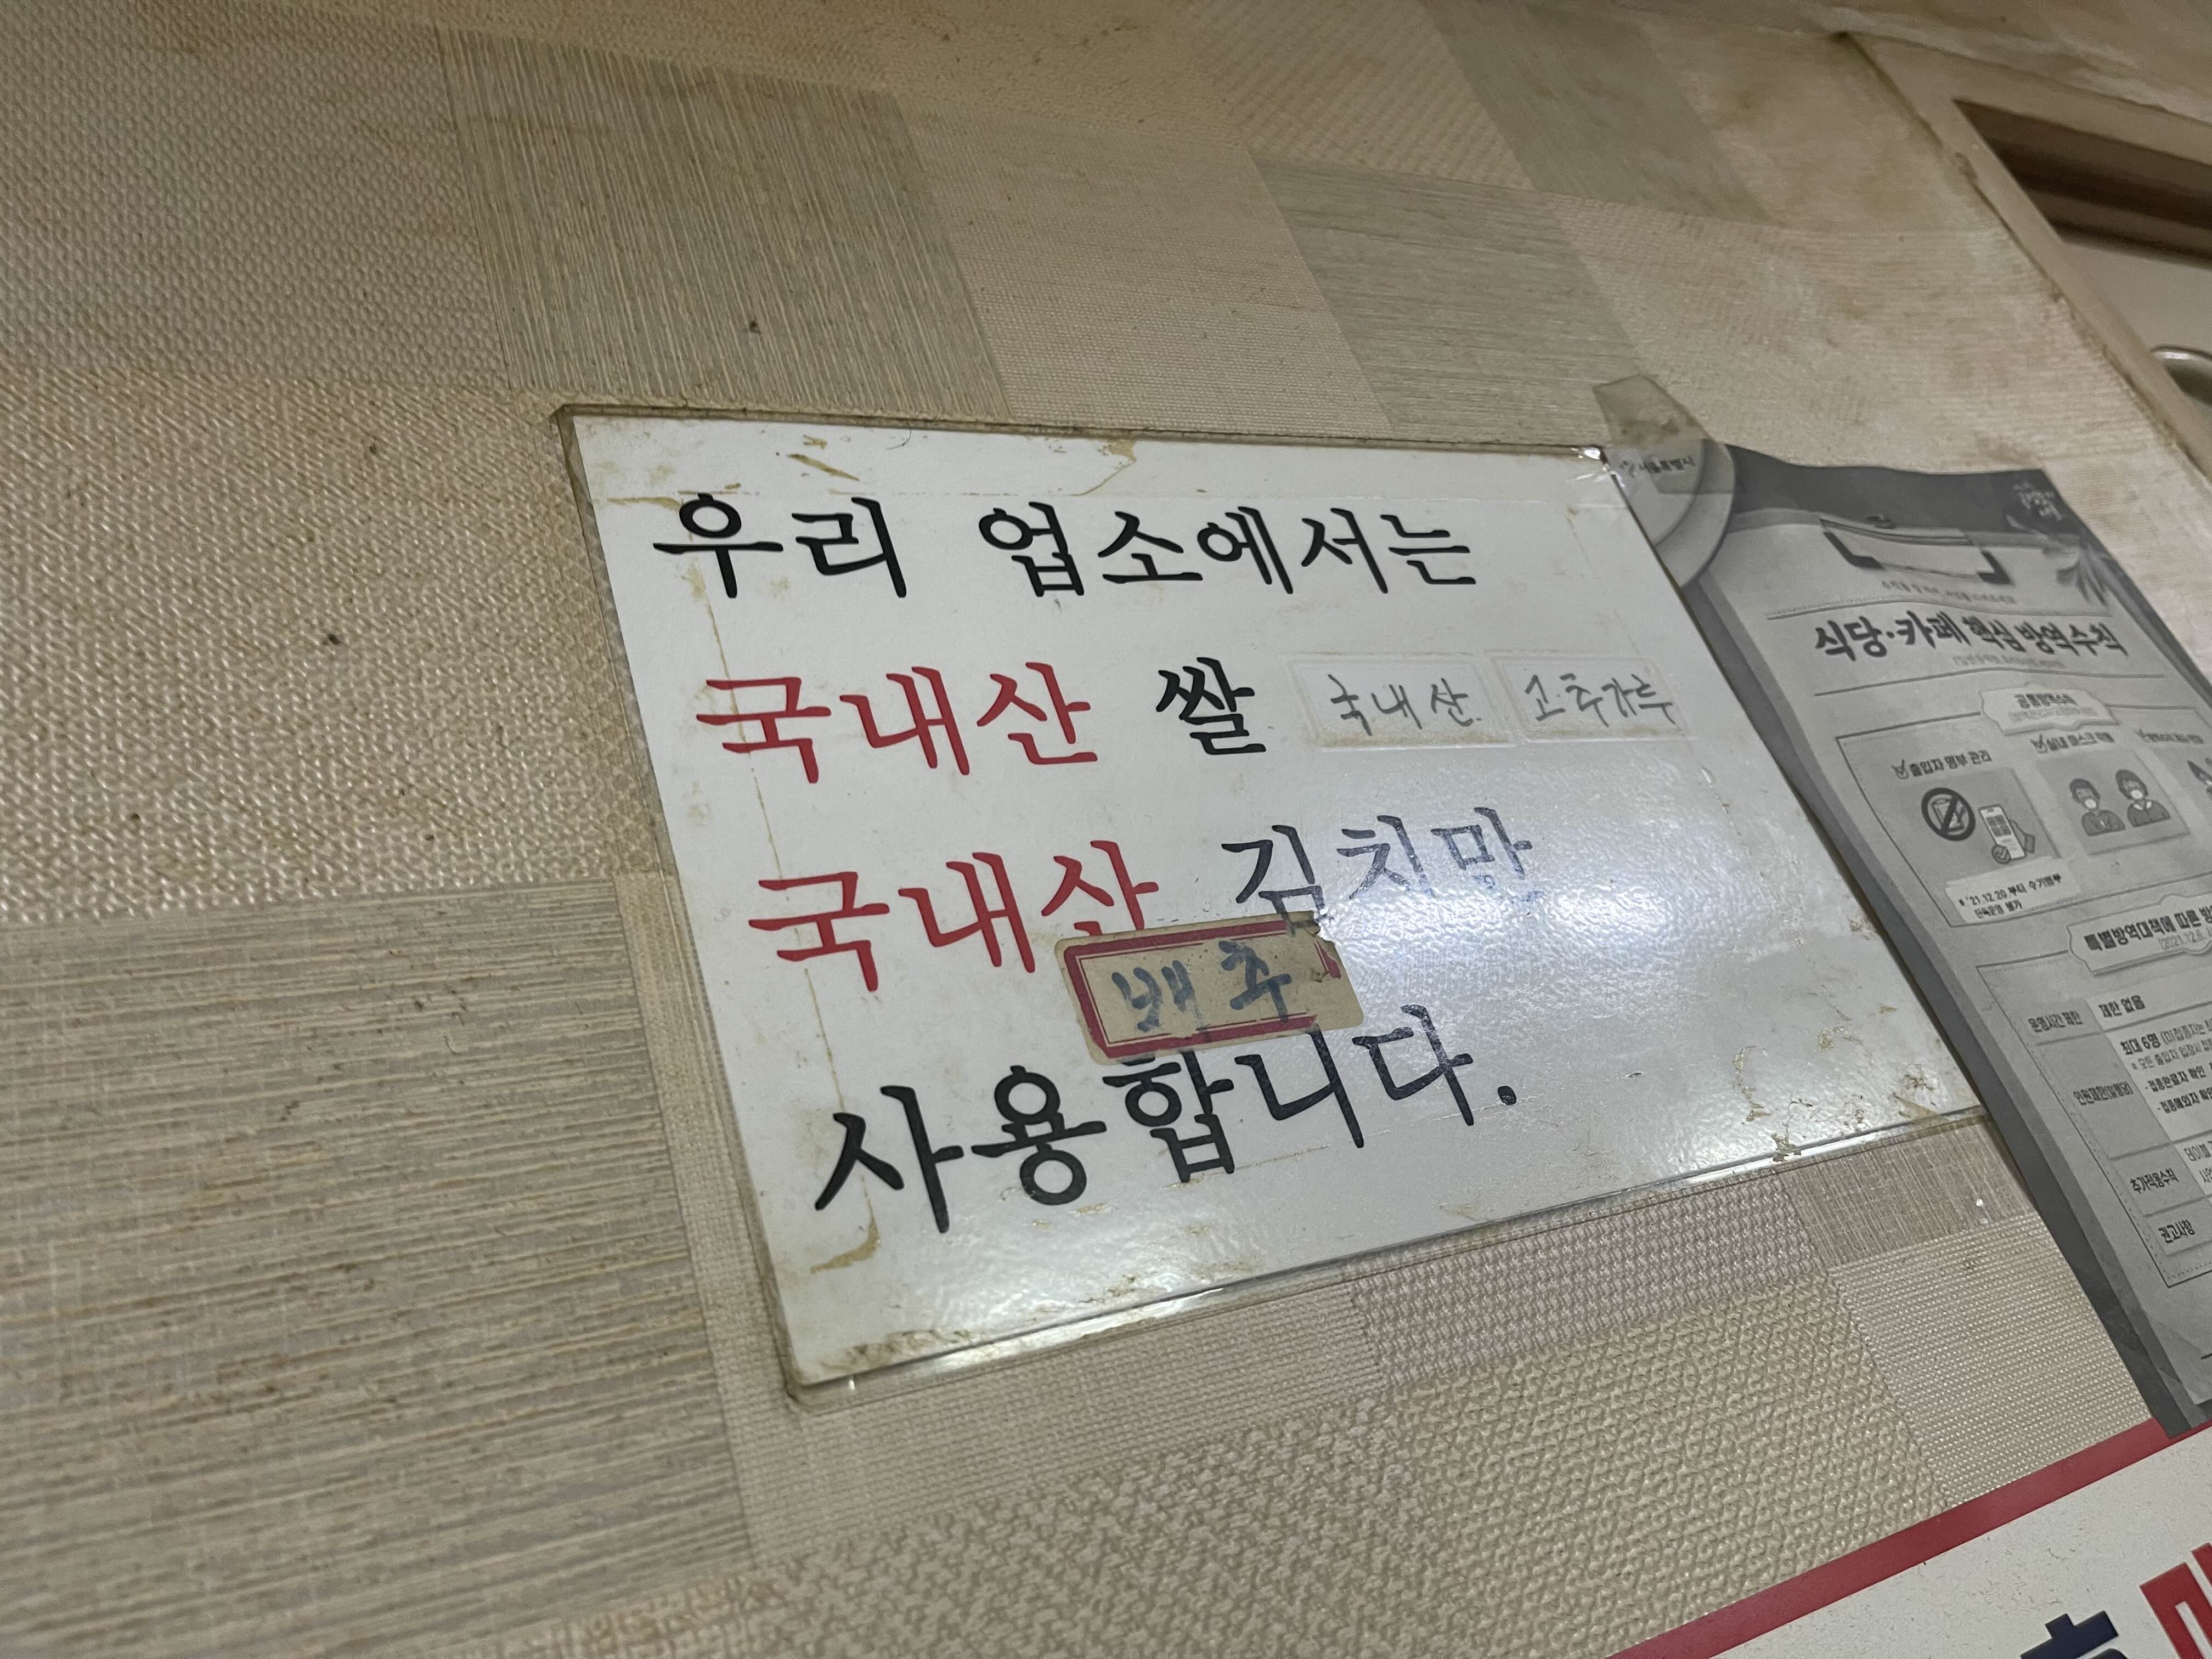 우리 업소에서는
국내산 쌀 국내산 고추가루
국내산 김치만
배추
사용합니다.
서울특별시
식당·카페 핵심 방역수칙
공통방역수칙
출입자 명부 관리
실내 마스크 착용
※ '21.12.20 부터 수기명부
단독운영 불가
특별방역대책에 따른
운영시간 제한 제한 없음
최대 6명
추가적용수칙
권고사항